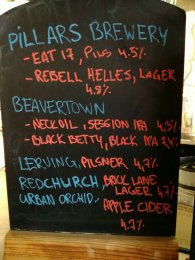 PILLARS BREWERY
- EAT 17, PILS 4.5%
- REBELL HELLES, LAGER
4.8%
BEAVERTOWN
- NECK OIL, SESSION IPA 4.5%
- BLACK BETTY, BLACK IPA 7,4%
LERVING, PILSNER 4.7%
REDCHURCH, BRICK LANE
LAGER 4,7%
URBAN ORCHID, APPLE CIDER
4.7%